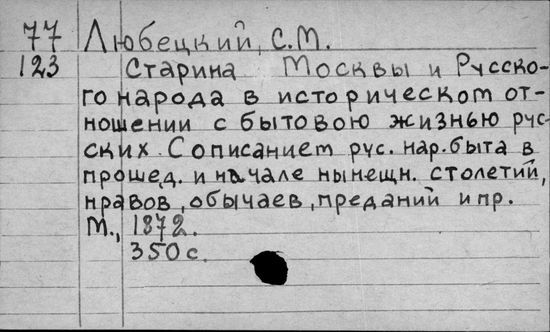 77 Любецкий, С.М.
123 Старина Москвы и Русско-
го народа в историческом от-
ношении с бытовою жизнью рус-
ских. С описанием рус. нар. быта в
прошед. и начале нынешн. столетий,
нравов, обычаев, преданий и пр.
М., 1872.
350 с.